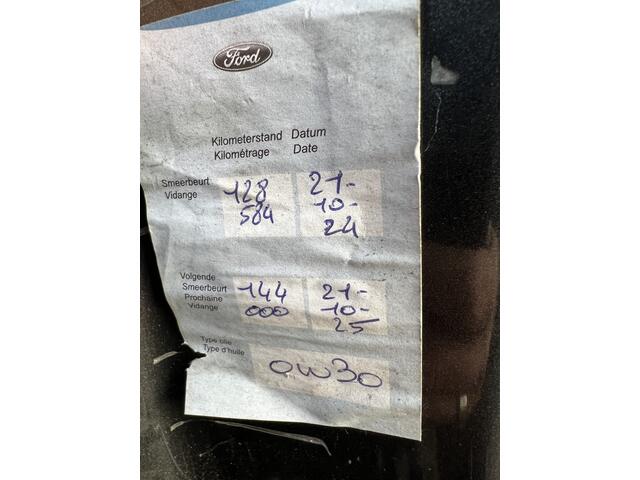 Ford
Kilometerstand Datum
Kilométrage Date
Smeerbeurt 128 21-
Vidange 584 10-
24
Volgende
Smeerbeurt 144 21-
Prochaine 000 10-
Vidange 25
Type olie
Type d'huile 0W30